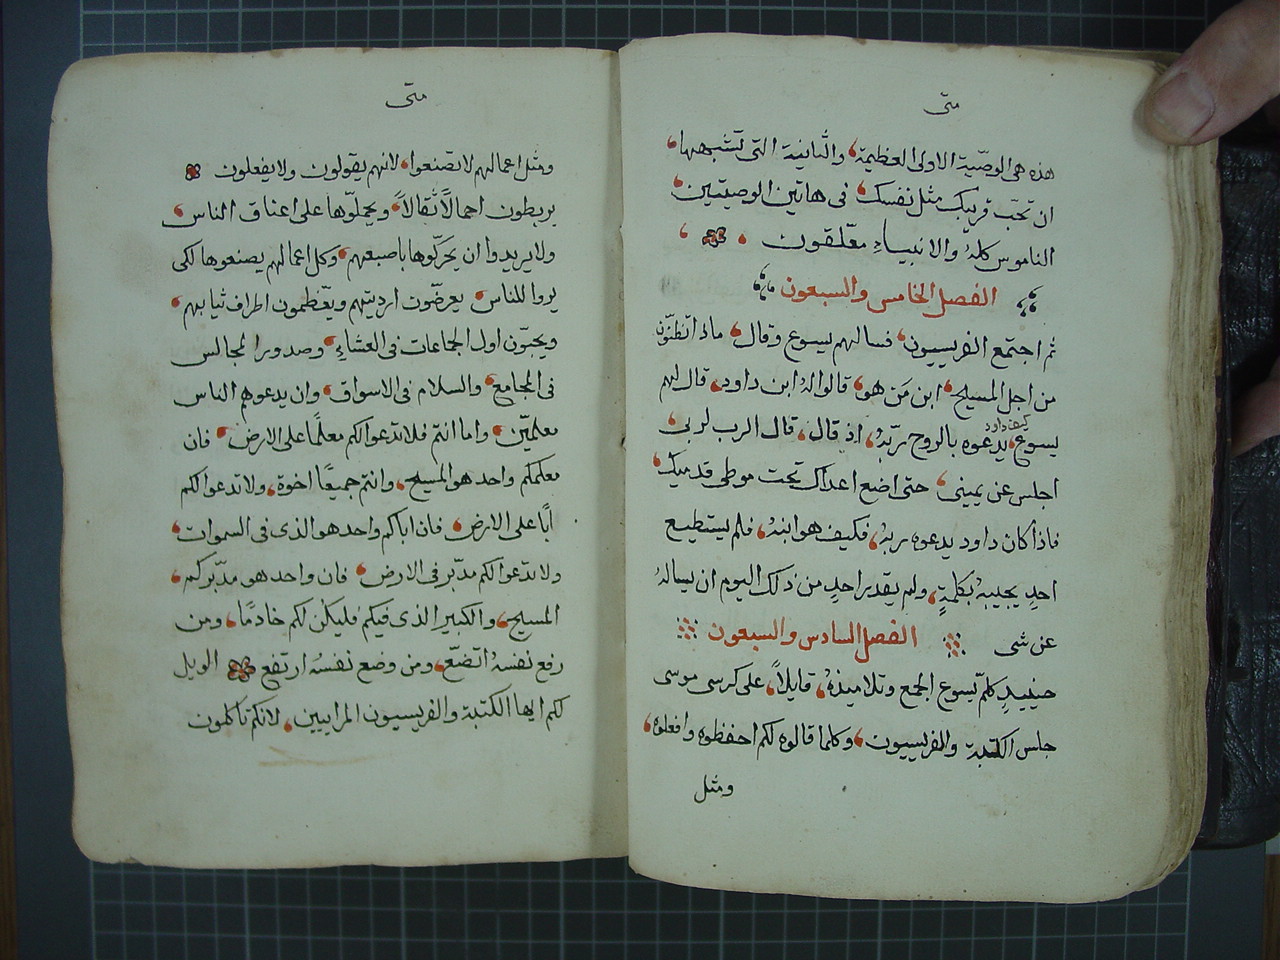 متى
هذه هى الوصّية الاولى العظيمة، والثانية التى تشبهها،
ان تحّب قريبك مثل نفسك، فى هاتين الوصيتين،
الناموس كلهُ والانبياءِ معّلقون
الفصل الخامس والسبعون
ثم اجتمع الفريسيون، فسالهم يسوع وقال، ماذا تظنّون
من اجل المسيح، ابن مَن هو، قالوا لهُ ابن داود، قال لهم
يسوع، كيف داود يدعوه بالروح ربّهُ، اذ قال، قال الرب لربى،
اجلس عن يمينى، حتى اضع اعداك تحت موطى قدميك،
فاذا كان داود يدعوه ربهُ، فكيف هو ابنهُ، فلم يستطيع
احدٍ يجيبهُ بكلمةٍ، ولم يقدر احدٍ من ذلك اليوم ان يسالهُ
عن شى الفصل السادس والسبعون
حينيدٍ كلّم يسوع الجمع وتلاميذهُ، قايلاً، على كرسى موسى
جلس الكتبة والفريسيون، وكلما قالوه لكم احفظوه وافعلوه،
ومثل
متى
ومثل اعمالهم لا تصنعوا، لانهم يقولون ولا يفعلون
يربطون احمالاً ثقالاً، ويحملّوها على اعناق الناس،
ولا يريدوا ان يحركّوها باصبعهم، وكل اعمالهم يصنعوها لكى
يروا للناس، يعرضّون ارديتهم ويعّظمون اطراف ثيابهم،
ويحبّون اول الجماعات فى العشاءِ، وصدور المجالس
فى المجامع، والسلام فى الاسواق، وان يدعوهم الناس
معلميّن، واما انتم فلا تدعوا لكم معلمًا على الارض، فان
معلمكم واحد هو المسيح، وانتم جميعًا اخوة، ولا تدعوا لكم
ابًا على الارض، فان اباكم واحد هو الذى فى السموات،
ولا تدعوا لكم مدّبر فى الارض، فان واحد هو مدّبركم،
المسيح، والكبير الذى فيكم فليكن لكم خادمًا، ومن
رفع نفسهُ اتضّع، ومن وضع نفسهُ ارتفع الويل
لكم ايها الكتبة والفريسيون المراييين، لانكم تاكلون